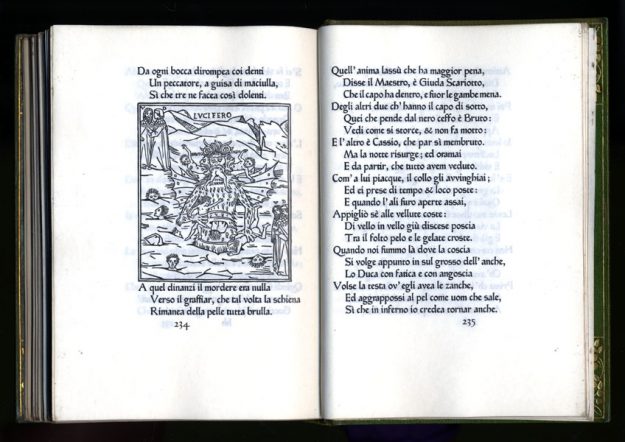 Da ogni bocca dirompea coi denti
Un peccatore, a guisa di maciulla,
Sì che tre ne facea così dolenti.
LVCIFERO
A quel dinanzi il mordere era nulla
Verso il graffiar, che tal volta la schiena
Rimanea della pelle tutta brulla.
234
Quell' anima lassù che ha maggior pena,
Disse il Maestro, è Giuda Scariotto,
Che il capo ha dentro, e fuor le gambe mena.
Degli altri due ch' hanno il capo di sotto,
Quei che pende dal nero ceffo è Bruto:
Vedi come si storce, & non fa motto:
E l' altro è Cassio, che par sì membruto.
Ma la notte risurge; ed oramai
È da partir, che tutto avem veduto.
Com' a lui piacque, il collo gli avvinghiai;
Ed ei prese di tempo & loco poste:
E quando l' ali furo aperte assai,
Appigliò sè alle vellute coste:
Di vello in vello giù discese poscia
Tra il folto pelo e le gelate croste.
Quando noi fummo là dove la coscia
Si volge appunto in sul grosso dell' anche,
Lo Duca con fatica e con angoscia
Volse la testa ov' egli avea le zanche,
Ed aggrappossi al pel come uom che sale,
Sì che in inferno io credea tornar anche.
235